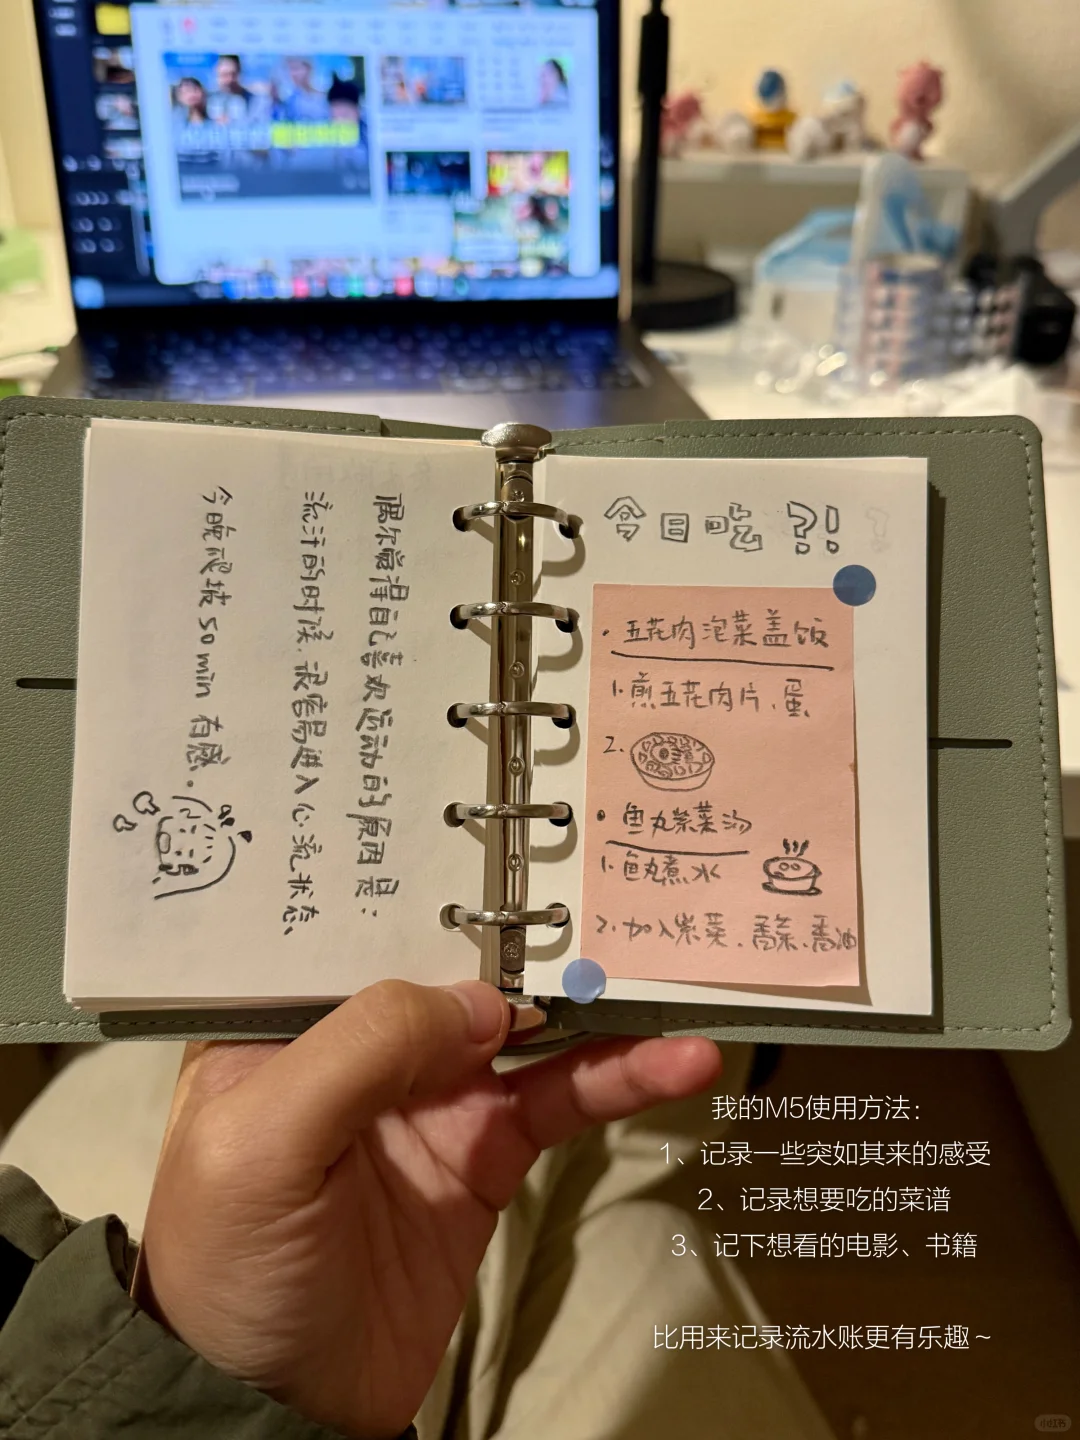 偶尔觉得自己喜欢运动的原因是：
流汗的时候，很容易进入心流状态、
今晚爬坡50min 有感.
今日吃?!
• 五花肉泡菜盖饭
1. 煎五花肉片、蛋
2.
• 鱼丸紫菜汤
1. 鱼丸煮水
2. 加入紫菜、香菜、香油
我的M5使用方法：
1、记录一些突如其来的感受
2、记录想要吃的菜谱
3、记下想看的电影、书籍
比用来记录流水账更有乐趣～
小红书